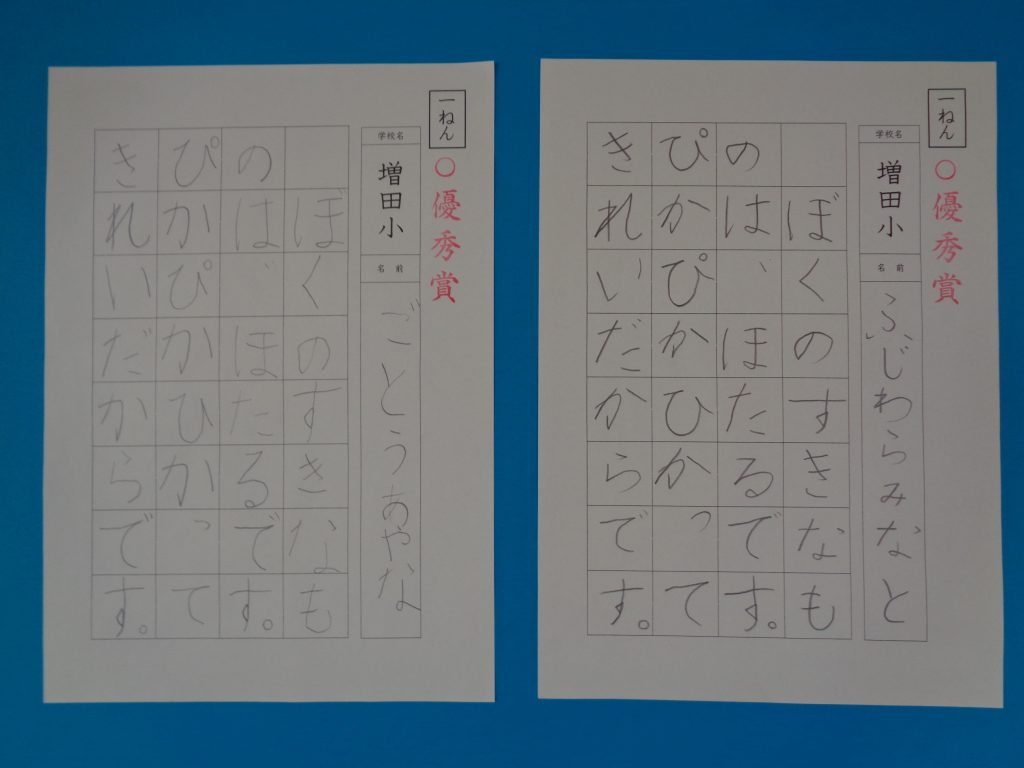 一ねん
○優秀賞
学校名
増田小
名前
ふじわらみなと
ぼくのすきなも
のは、ほたるです。
ぴかぴかひかって
きれいだからです。
一ねん
○優秀賞
学校名
増田小
名前
ごとうあやな
ぼくのすきなも
のは、ほたるです。
ぴかぴかひかって
きれいだからです。